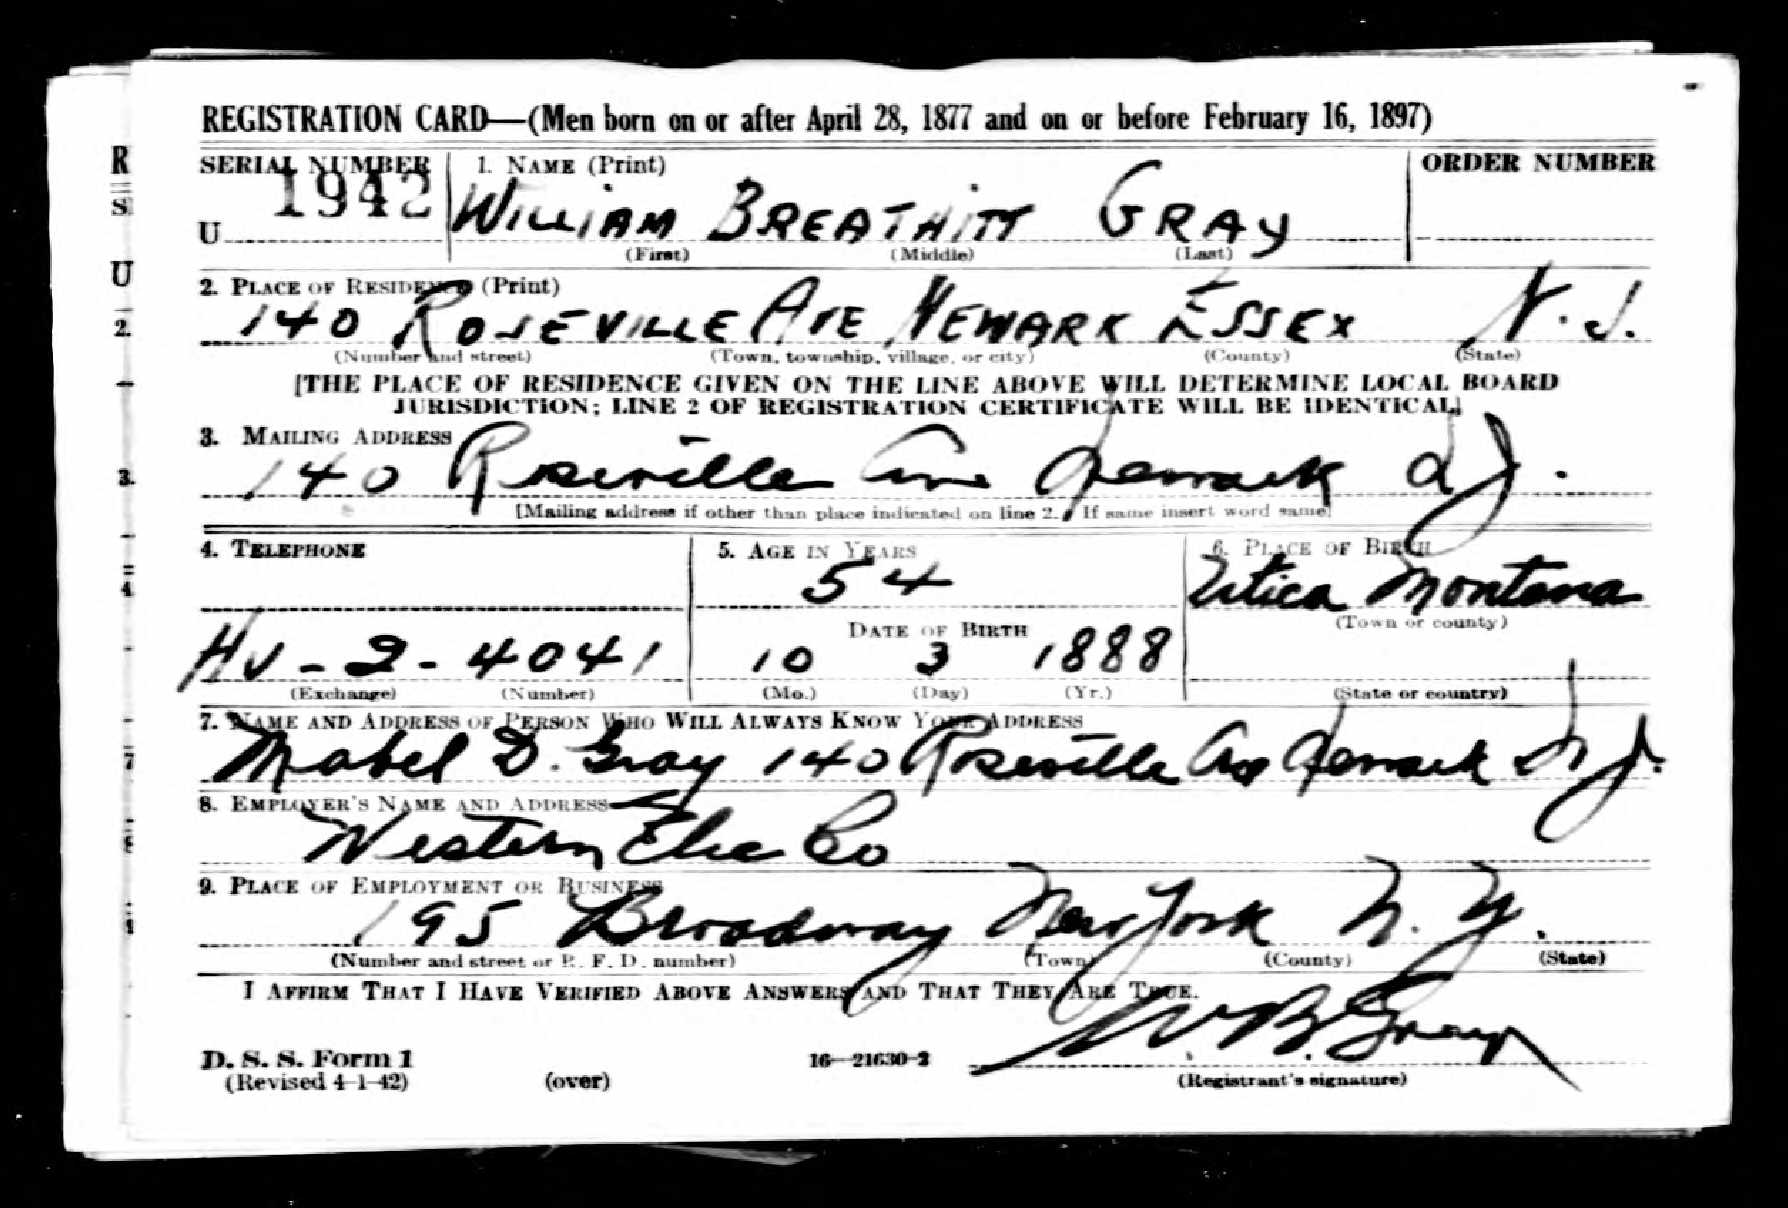 REGISTRATION CARD—(Men born on or after April 28, 1877 and on or before February 16, 1897)
SERIAL NUMBER 1. NAME (Print) ORDER NUMBER
U 1942 WILLIAM BREATHITT GRAY
(First) (Middle) (Last)
2. PLACE OF RESIDENCE (Print)
140 ROSEVILLE AVE NEWARK ESSEX N.J.
(Number and street) (Town, township, village, or city) (County) (State)
[THE PLACE OF RESIDENCE GIVEN ON THE LINE ABOVE WILL DETERMINE LOCAL BOARD
JURISDICTION; LINE 2 OF REGISTRATION CERTIFICATE WILL BE IDENTICAL]
3. MAILING ADDRESS
140 Roseville Ave Newark N J.
[Mailing address if other than place indicated on line 2. If same insert word same]
4. TELEPHONE 5. AGE IN YEARS 6. PLACE OF BIRTH
54 Utica Montana
DATE OF BIRTH (Town or county)
HU-2-4041 10 3 1888
(Exchange) (Number) (Mo.) (Day) (Yr.) (State or country)
7. NAME AND ADDRESS OF PERSON WHO WILL ALWAYS KNOW YOUR ADDRESS
Mabel D. Gray 140 Roseville Ave Newark N J.
8. EMPLOYER'S NAME AND ADDRESS
Western Elec Co
9. PLACE OF EMPLOYMENT OR BUSINESS
195 Broadway New York N. Y.
(Number and street or R. F. D. number) (Town) (County) (State)
I AFFIRM THAT I HAVE VERIFIED ABOVE ANSWERS AND THAT THEY ARE TRUE.
W B. Gray
D. S. S. Form 1 16—21630-2
(Revised 4-1-42) (over) (Registrant's signature)